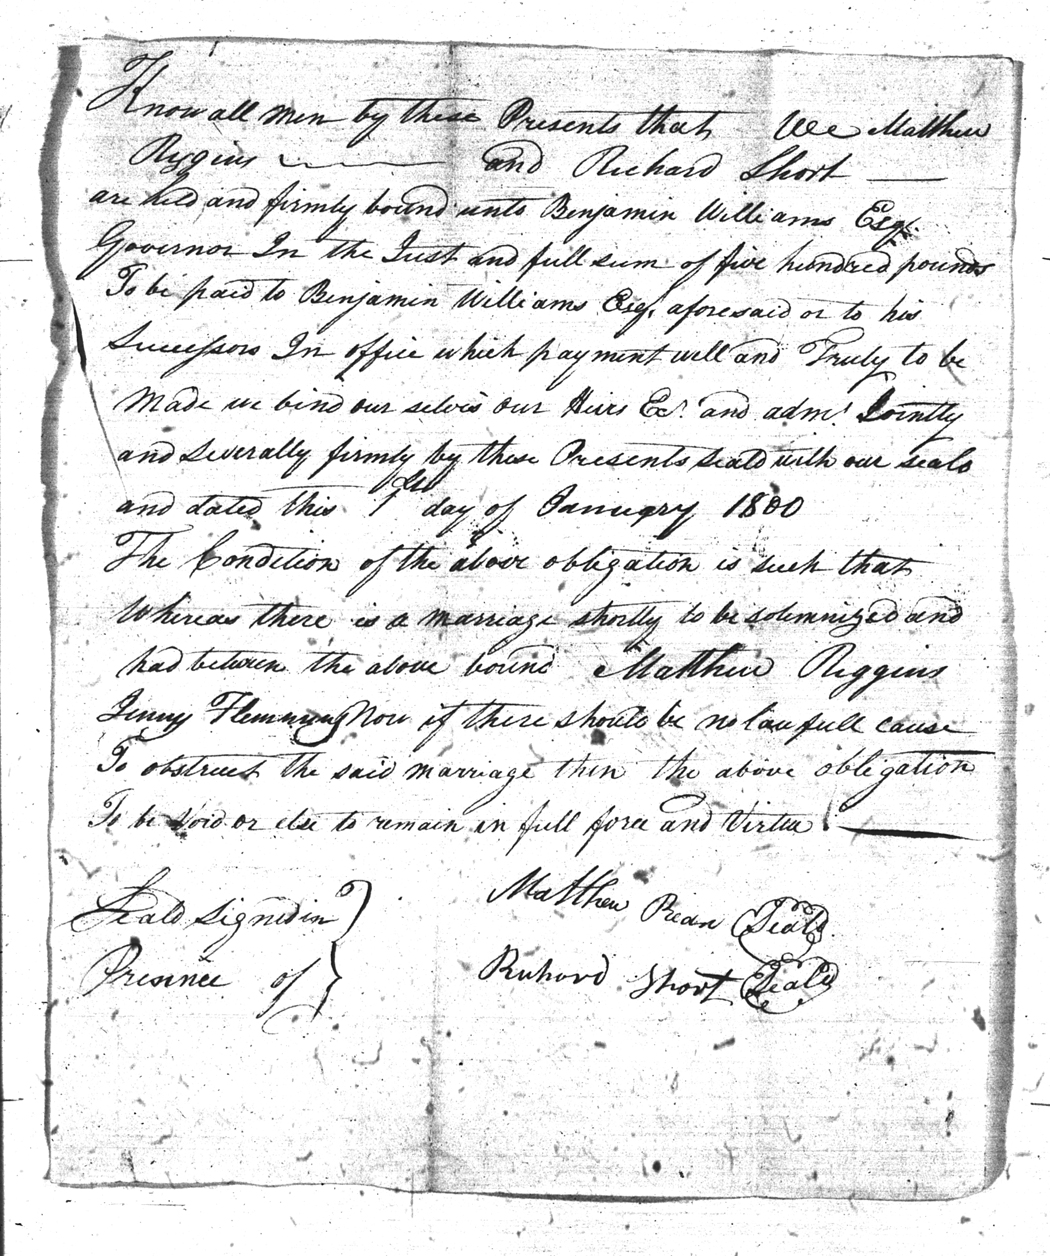 Know all men by these Presents that We Matthew
Riggins and Richard Short
are held and firmly bound unto Benjamin Williams Esqr.
Governor In the Just and full sum of five hundred pounds
To be paid to Benjamin Williams Esqr. aforesaid or to his
Successors In office which payment well and Truly to be
Made we bind our selves our Heirs Exs. and adms. Jointly
and Severally firmly by these Presents Seald with our seals
and dated this 1 day of January 1800
The Condition of the above obligation is such that
Whereas there is a marriage shortly to be solemnized and
had between the above bound Matthew Riggins
Jinny Flemmung Now if there should be no lawfull cause
To obstruct the said marriage then the above obligation
To be Void or else to remain in full force and Virtue
Seald signed in
Presence of
Matthew Seald
Richard Short Seald